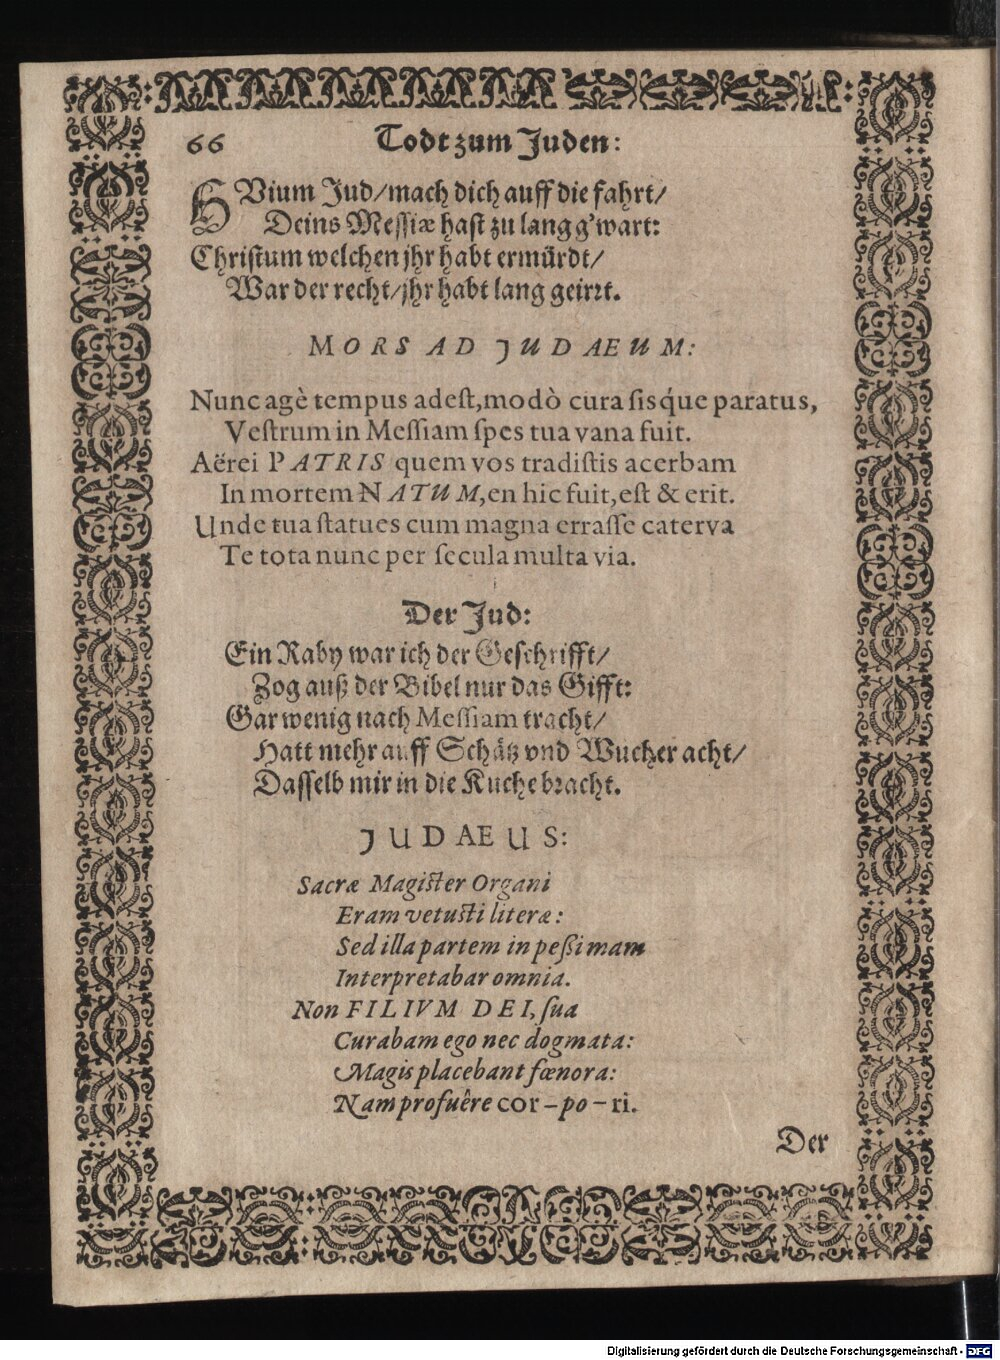 66 Todt zum Juden:
HVium Jud/mach dich auff die fahrt/
Deins Messiæ hast zu lang g'wart:
Christum welchen jhr habt ermürdt/
War der recht/jhr habt lang geirrt.
MORS AD JUDAEUM:
Nunc agè tempus adest, modò cura sisq́ue paratus,
Vestrum in Messiam spes tua vana fuit.
Aërei PATRIS quem vos tradistis acerbam
In mortem NATUM, en hic fuit, est & erit.
Unde tua statues cum magna errasse caterva
Te tota nunc per secula multa via.
Der Jud:
Ein Raby war ich der Geschrifft/
Zog auß der Bibel nur das Gifft:
Gar wenig nach Messiam tracht/
Hatt mehr auff Schätz vnd Wucher acht/
Dasselb mir in die Kuche bracht.
JUDAEUS:
Sacræ Magister Organi
Eram vetusti literæ:
Sed illa partem in peßimam
Interpretabar omnia.
Non FILIVM DEI, sua
Curabam ego nec dogmata:
Magis placebant fœnora:
Nam profuêre cor-po-ri.
Der
Digitalisierung gefördert durch die Deutsche Forschungsgemeinschaft - DFG